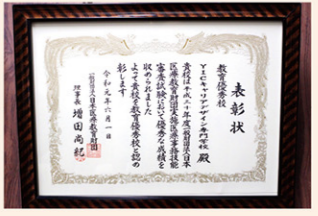 表彰状
教育優秀校
YICキャリアデザイン専門学校 殿
貴校は平成三十年度一般財団法人日本
医療教育財団実施医療事務技能
審査試験において優秀な成績を
収められました
よって貴校を教育優秀校と認め
彰します
令和元年六月一日
一般財団法人日本医療教育財団
理事長 増田尚紀